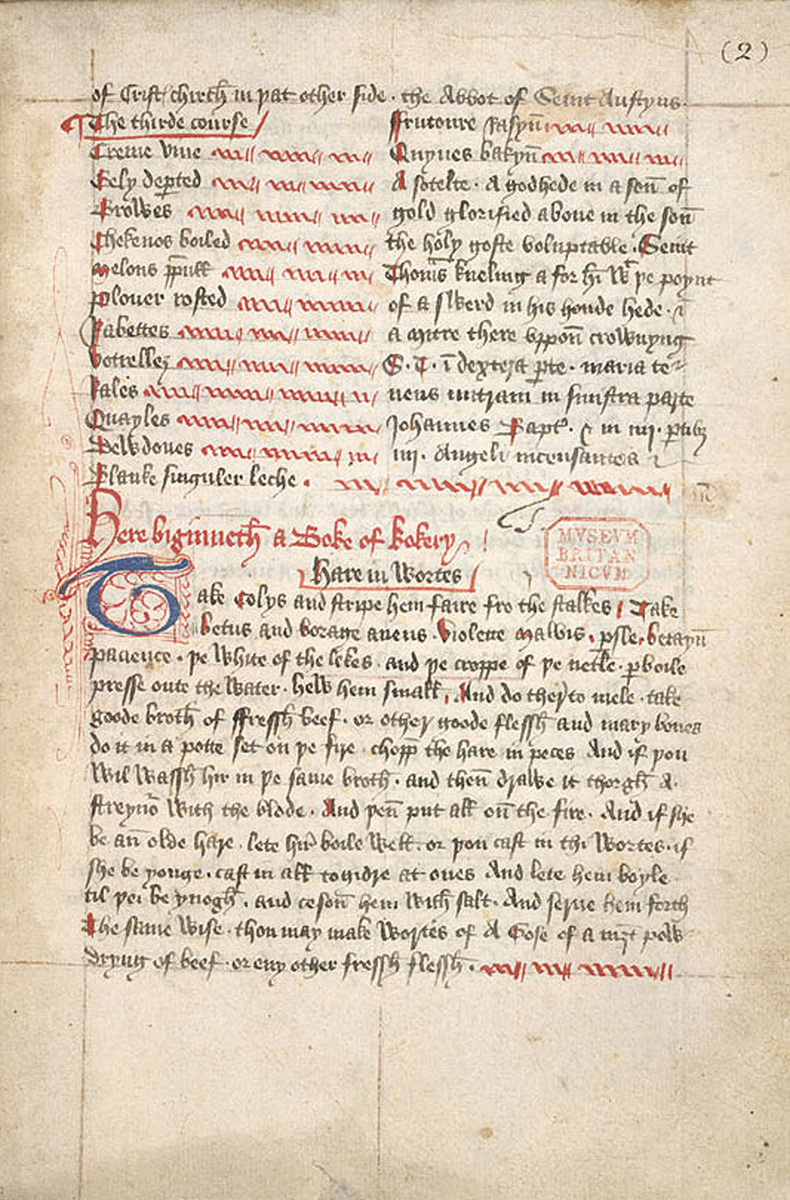 (2)
of Crist chirch in þat other side · the Abbot of Seint Austyns ·
The thirde course
Creme vine
Gely deꝑted
Browes
Chekenos boiled
melons
Plouer rosted
Rabettes
Botrellez
Rales
Quayles
Dewdoues
Blanke singuler leche ·
ffrutoure Rasyn̄
Quynes bakyn̄
A sotelte · A godhede in a son̄ of
gold glorified aboue in the son̄
the holy goste voluptable · Seint
Thom̄s kneling a for hī wt þe poynt
of a swerd in his honde hede · &
a mitre there vppon̄ crownyng
S · T · ī dextera ꝑte · maria te
nens mitram in sinistra parte
Johannes Bapt · & in iiij · ꝑtibz
iiij · Angeli incensantes
Here biginneth a Boke of kokery
Hare in Wortes
MVSEVM
BRITAN
NICVM
Take Colys and stripe hem faire fro the stalkes / Take
betus and borage auens · Violette Malwis · ꝑsle · betayn̄
pacience · þe white of the lekes · and þe croppe of þe netle · ꝑboile
presse oute the water · hew hem small / And do therto mele · take
goode broth of ffressh beef · or other goode flessh and mary bones
do it in a potte set on þe fire · chopp the hare in peces And if þou
wil wassh hir in þe same broth · and then̄ drawe it thorgh A ·
streyno with the blode · And þen̄ put all on̄ the fire · And if she
be an̄ olde hare · lete hir boile well · or þou cast in thi wortes · if
she be yonge · cast in all togidre at ones And lete hem boyle
til þei be ynogh · and ceson̄ hem with salt · And serue hem forth
The same wise · thou may make wortes of A Gose of a powdryng of beef · or eny other fressh flessh ·